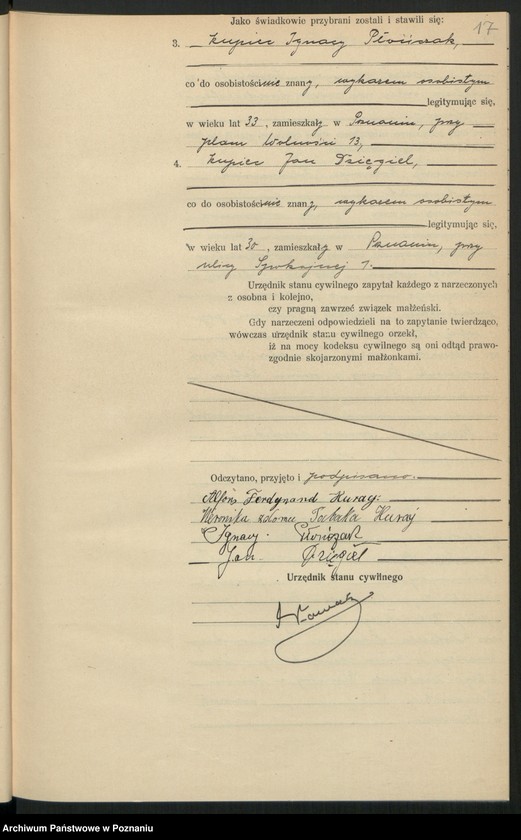 17
Jako świadkowie przybrani zostali i stawili się:
3. kupiec Ignacy Płóciszak,
co do osobistości nie znany, wykazem osobistym
legitymując się,
w wieku lat 33, zamieszkały w Poznaniu, przy
placu Wolności 13,
4. kupiec Jan Dzięgiel,
co do osobistości nie znany, wykazem osobistym
legitymując się,
w wieku lat 30, zamieszkały w Poznaniu, przy
ulicy Spokojnej 7.
Urzędnik stanu cywilnego zapytał każdego z narzeczonych
z osobna i kolejno,
czy pragną zawrzeć związek małżeński.
Gdy narzeczeni odpowiedzieli na to zapytanie twierdząco,
wówczas urzędnik stanu cywilnego orzekł,
iż na mocy kodeksu cywilnego są oni odtąd prawo-
zgodnie skojarzonymi małżonkami.
Odczytano, przyjęto i podpisano.
Alfons Ferdynand Kuraj.
Weronika z domu Tabaka Kuraj
Ignacy
Jan Dzięgiel
Urzędnik stanu cywilnego
Archiwum Państwowe w Poznaniu